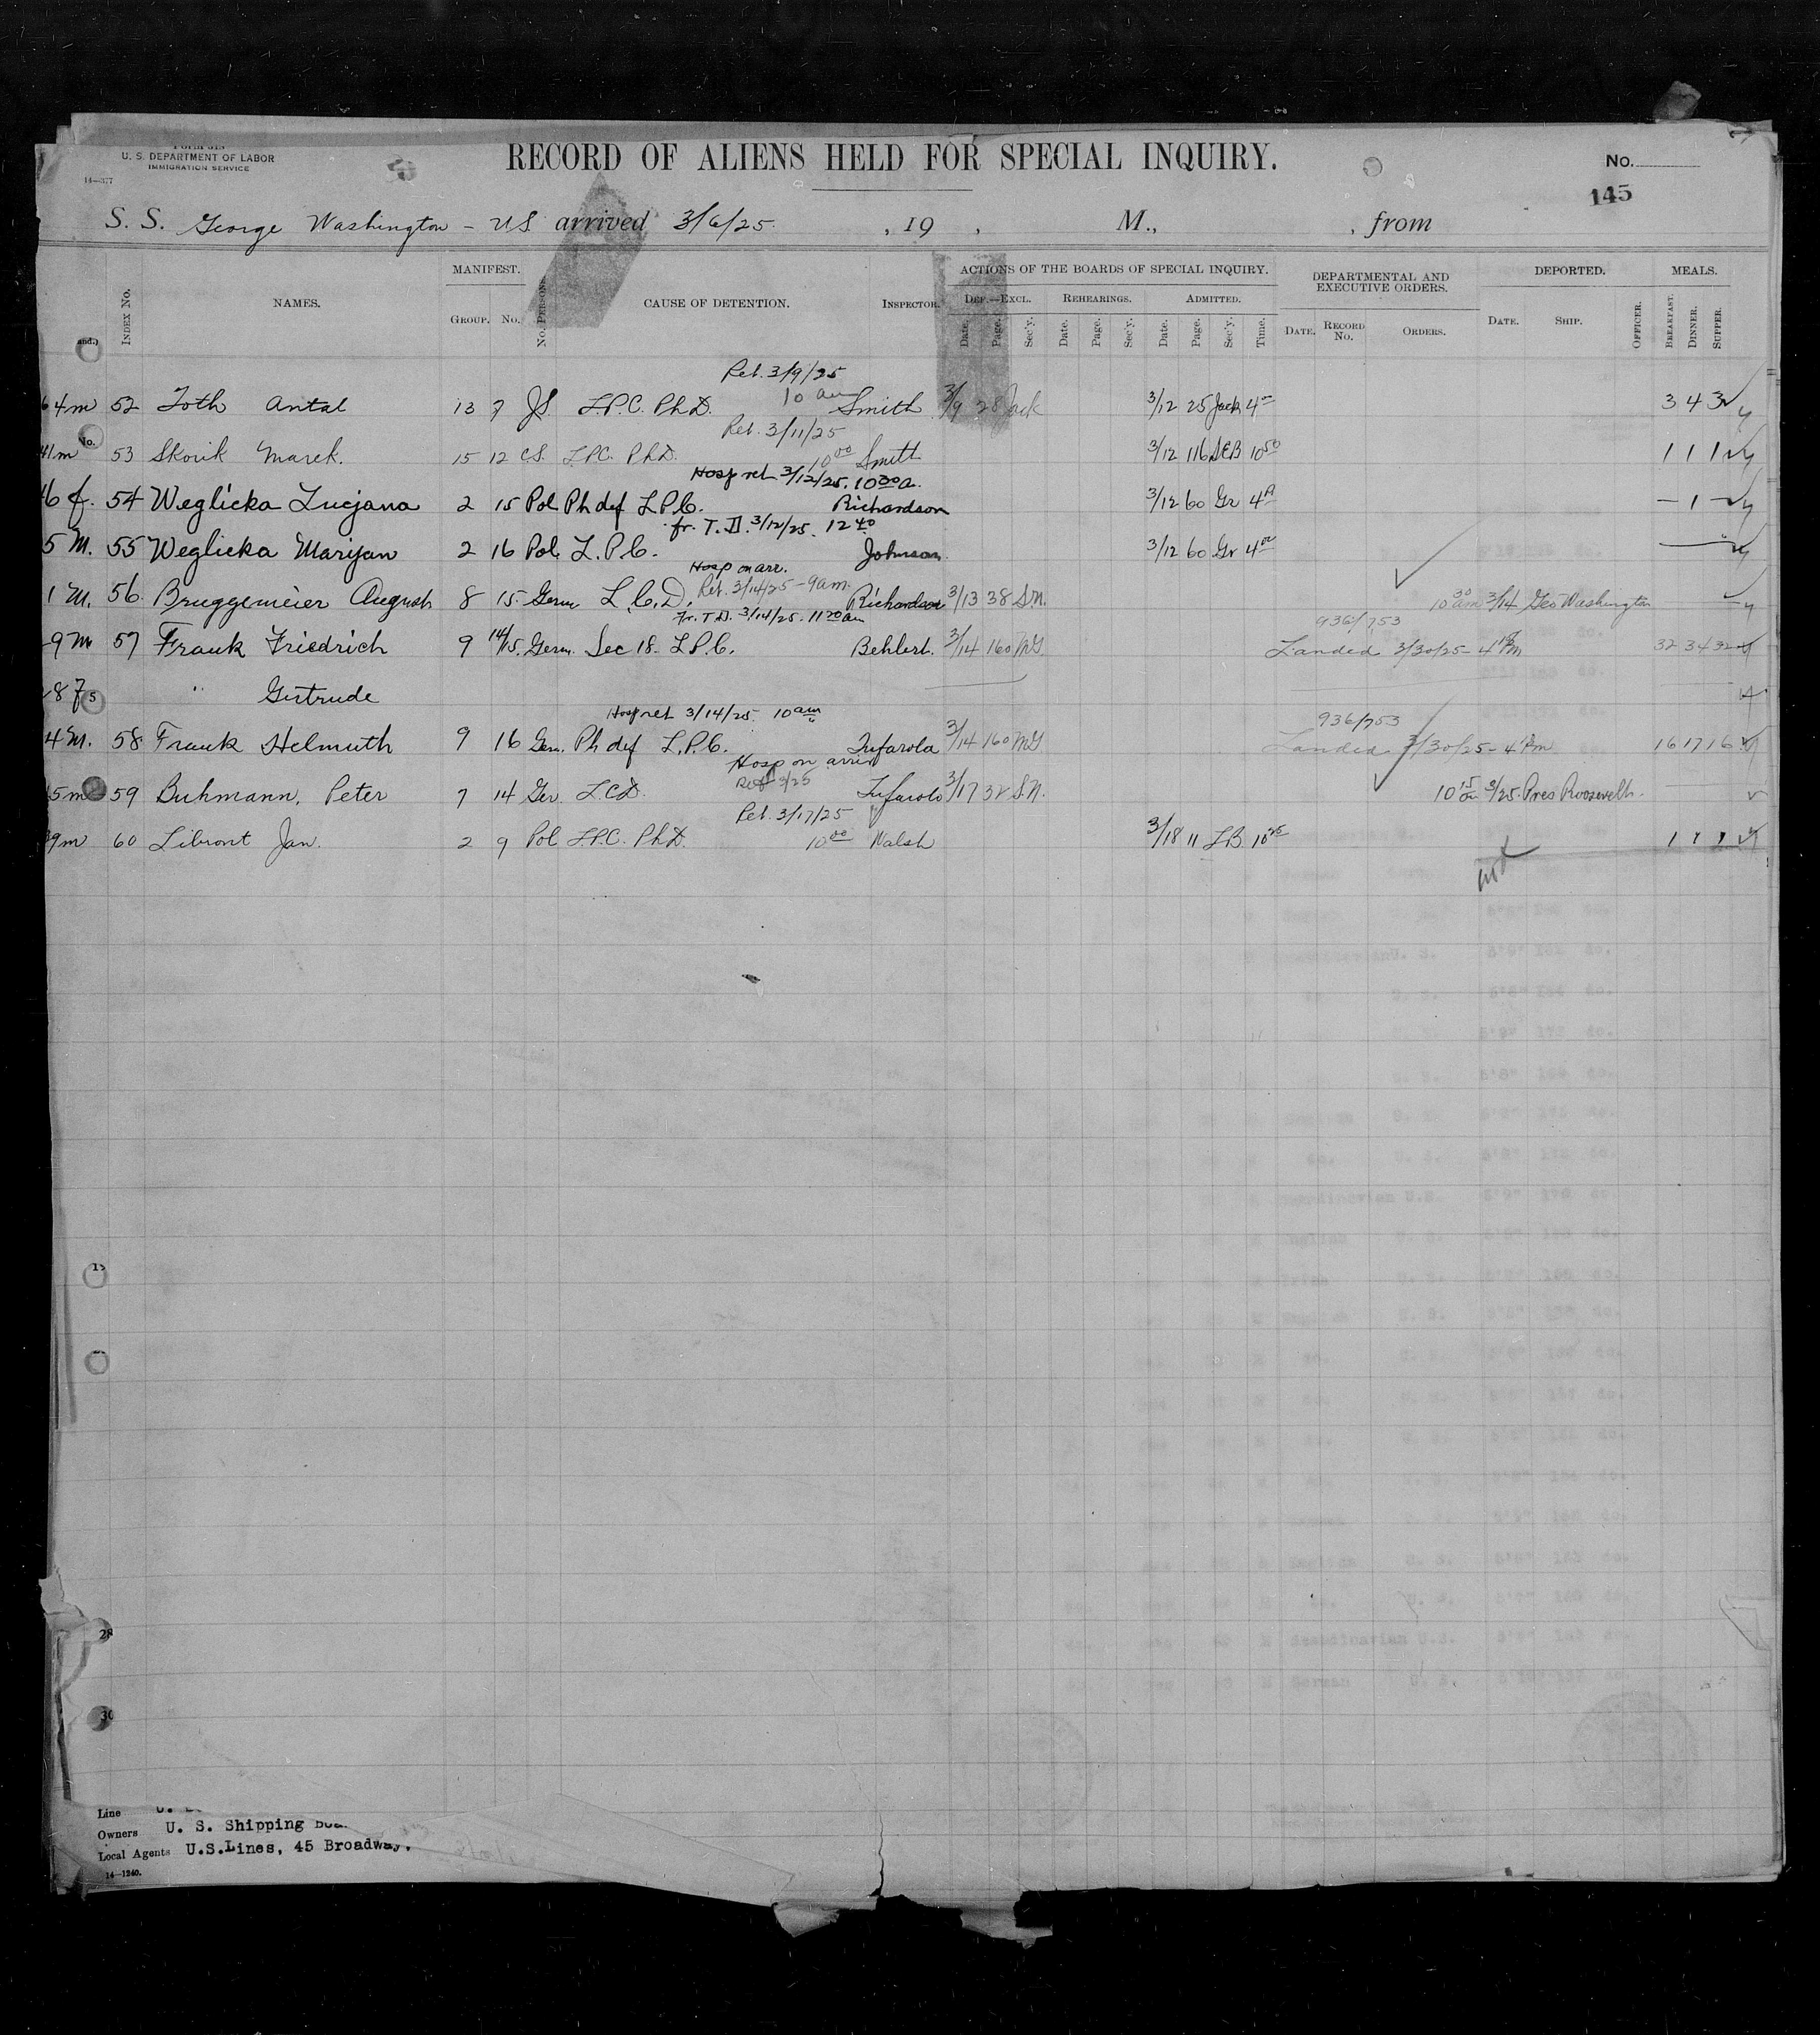 U. S. DEPARTMENT OF LABOR
IMMIGRATION SERVICE
14—377
RECORD OF ALIENS HELD FOR SPECIAL INQUIRY.
No.
145
S. S. George Washington - US arrived 3/6/25 , 19 , M., , from
INDEX No. NAMES. MANIFEST. GROUP. No. No. PERSONS. CAUSE OF DETENTION. INSPECTOR. ACTIONS OF THE BOARDS OF SPECIAL INQUIRY. DEF.—EXCL. Date. Page. Sec'y. REHEARINGS. Date. Page. Sec'y. ADMITTED. Date. Page. Sec'y. Time. DEPARTMENTAL AND EXECUTIVE ORDERS. DATE. RECORD No. ORDERS. DEPORTED. DATE. SHIP. OFFICER. MEALS. BREAKFAST. DINNER. SUPPER.
Ret. 3/9/25
10 am
4 m 52 Toth Antal 13 7 JS L.P.C. Ph.D. Smith 3/9 28 Jack 3/12 25 Jack 4 3 4 3
Ret. 3/11/25
41 m 53 Skorik Marek. 15 12 CS. L.P.C. Ph.D. 10 00 Smith 3/12 116 SEB 10 50 1 1 1
Hosp ret 3/12/25. 10 30 a.
6 f. 54 Weglicka Lucjana 2 15 Pol Ph def L.P.C. Richardson 3/12 60 Gr 4 — 1 —
fr. T. D. 3/12/25. 12 40
5 M. 55 Weglicka Marijan 2 16 Pol. L.P.C. Johnson 3/12 60 Gr 4 00
Hosp on arr.
Ret. 3/14/25 - 9 am.
1 M. 56 Bruggemeier August 8 15 Germ L.C.D. Richardson 3/13 38 S.N. 10 30 am 3/14 Geo Washington
Fr. T.D. 3/14/25. 11 20 am
936/753
9 M 57 Frank Friedrich 9 14/15. Germ. Sec 18. L.P.C. Behlert. 3/14 160 MG Landed 3/30/25 - 4 Pm 32 34 32
28 f " Gertrude
Hosp ret 3/14/25 10 am
936/753
4 M. 58 Frank Helmuth 9 16 Gem. Ph def L.P.C. Tufarola 3/14 160 MG Landed 3/30/25 - 4 Pm 16 17 16
Hosp on arriv
5 m 59 Buhmann, Peter 7 14 Ger. L.C.D. Tufarolo 3/17 32 S.N. 10 15 am 3/25. Pres Roosevelt.
Ret. 3/17/25
39 m 60 Libront Jan. 2 9 Pol L.P.C. Ph.D. 10 00 Walsh 3/18 11 LB 10 25 1 1 1
28
30
Line
Owners U. S. Shipping
Local Agents U.S.Lines, 45 Broadway,
14—1240.